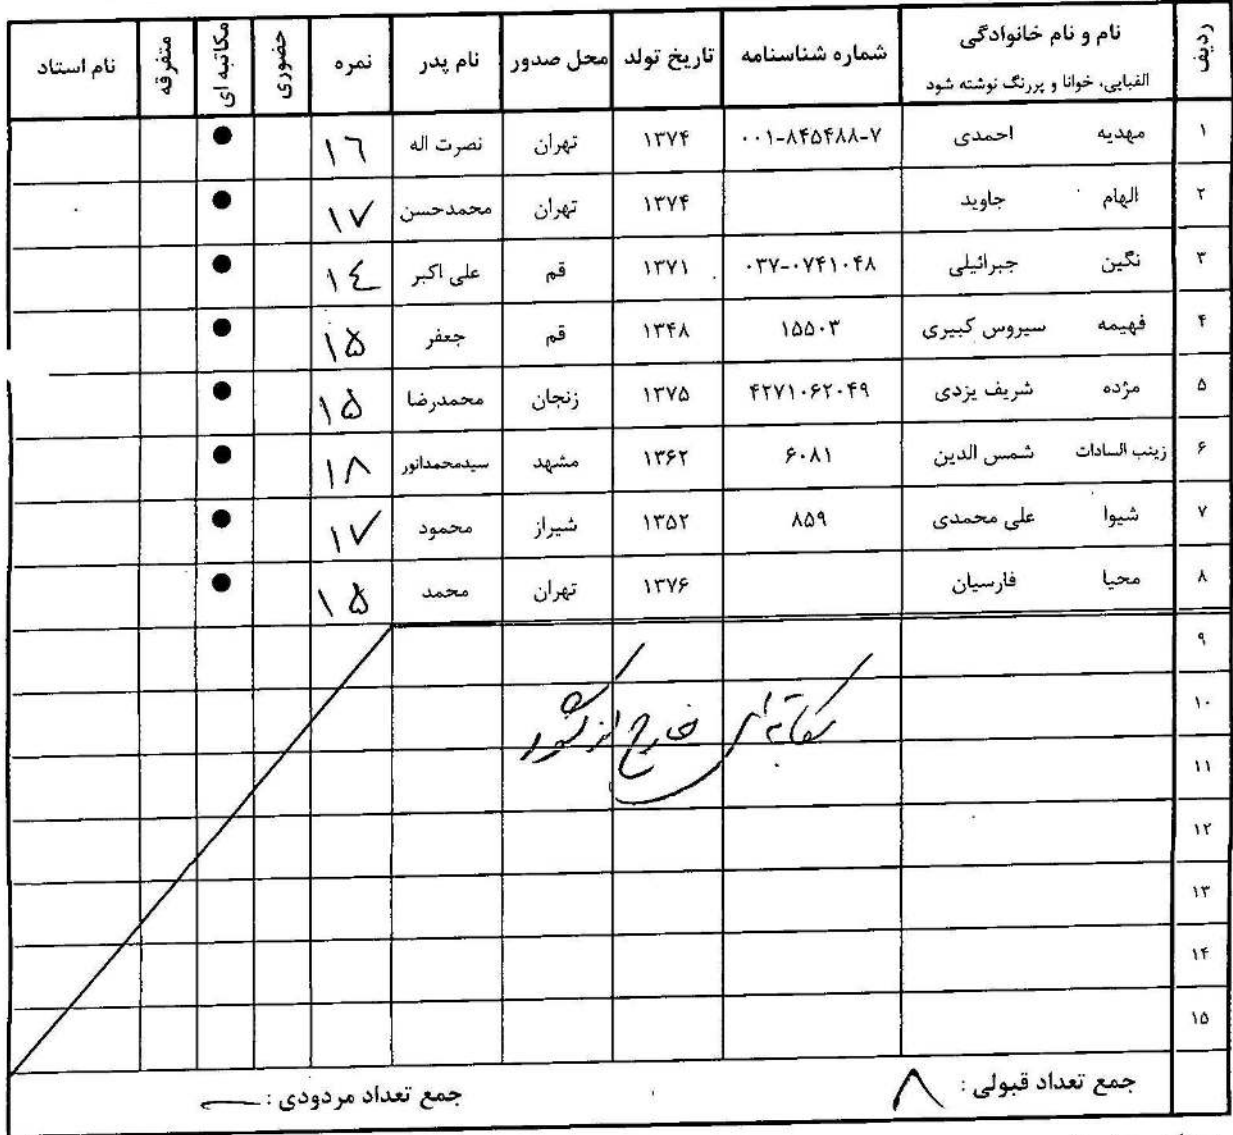 ردیف نام و نام خانوادگی شماره شناسنامه تاریخ تولد محل صدور نام پدر نمره حضوری مکاتبه ای متفرقه نام استاد
الفبایی، خوانا و پررنگ نوشته شود
۱ مهدیه احمدی ۰۰۱-۸۴۵۴۸۸-۷ ۱۳۷۴ تهران نصرت اله ۱۶ ●
۲ الهام جاوید ۱۳۷۴ تهران محمدحسن ۱۷ ●
۳ نگین جبرائیلی ۰۳۷-۰۷۴۱۰۴۸ ۱۳۷۱ قم علی اکبر ۱۴ ●
۴ فهیمه سیروس کبیری ۱۵۵۰۳ ۱۳۴۸ قم جعفر ۱۵ ●
۵ مژده شریف یزدی ۴۲۷۱۰۶۲۰۴۹ ۱۳۷۵ زنجان محمدرضا ۱۵ ●
۶ زینب السادات شمس الدین ۶۰۸۱ ۱۳۶۲ مشهد سیدمحمدانور ۱۸ ●
۷ شیوا علی محمدی ۸۵۹ ۱۳۵۲ شیراز محمود ۱۷ ●
۸ محیا فارسیان ۱۳۷۶ تهران محمد ۱۵ ●
۹
۱۰
مکاتبه ای خارج از کشور
۱۱
۱۲
۱۳
۱۴
۱۵
جمع تعداد قبولی : ۸ جمع تعداد مردودی : —